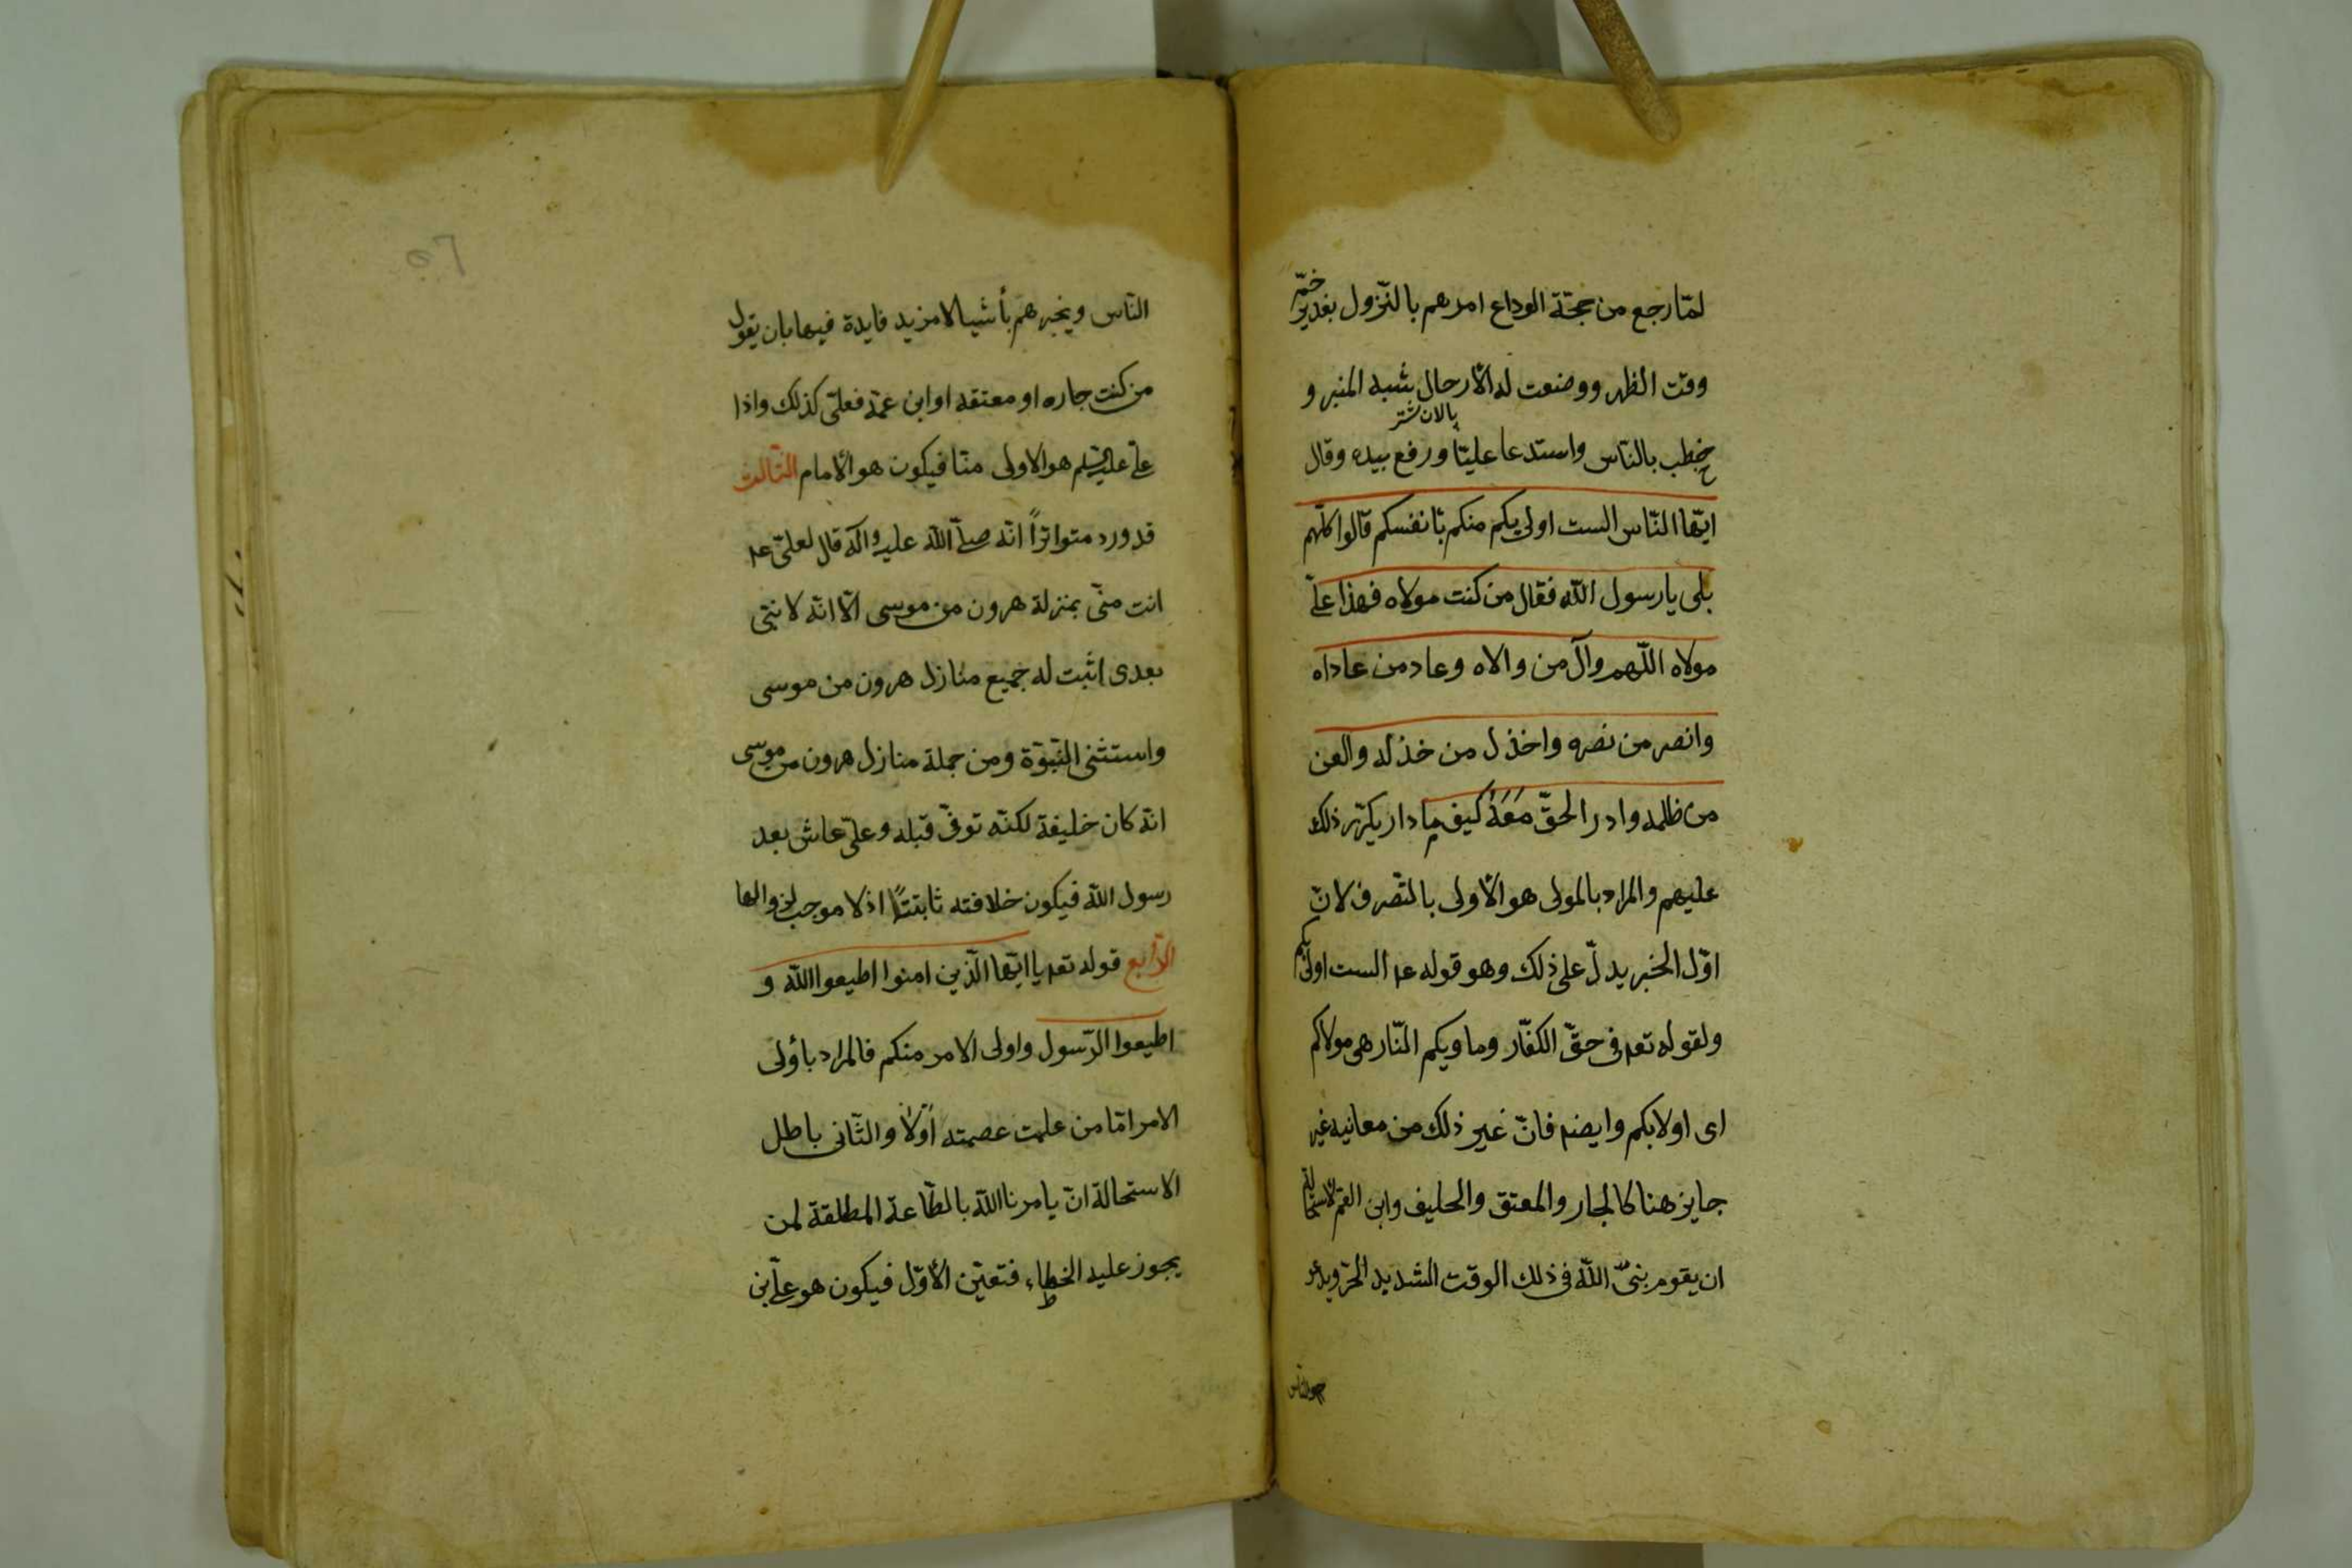 لمّا رجع من حجّة الوداع امرهم بالنّزول بغدير خمّ
وقت الظهر ووضعت له الأرحال شبه المنبر و
پالان شتر
خطب بالنّاس واستدعا عليّا ورفع بيده وقال
ايّها النّاس الست اولى بكم منكم بأنفسكم قالوا كلّهم
بلى يا رسول اللّه فقال من كنت مولاه فهذا علىّ
مولاه اللّهم وآل من والاه وعاد من عاداه
وانصر من نصره واخذل من خذله والعن
من ظلمه وادر الحقّ مَعَهُ كيف ما دار يكرّر ذلك
عليهم والمراد بالمولى هو الأولى بالتّصرف لانّ
اوّل الخبر يدلّ على ذلك وهو قوله عم الست اولى بكم
ولقوله تعم فى حقّ الكفّار وماويكم النّار هى مولاكم
اى اولا بكم وايضم فانّ غير ذلك من معانيه غير
جايز هنا كالجار والمعتق والحليف وابن العمّ لاستحالة
ان يقوم بنىّ اللّه فى ذلك الوقت الشديد الحرّ ويدعو
النّاس ويخبرهم بأشيا لا مزيد فايدة فيها بان يقول
من كنت جاره او معتقه او ابن عمّه فعلىّ كذلك واذا
علىّ عليه السّلم هو الاولى منّا فيكون هو الأمام الثّالث
قد ورد متواتراً انّه صلّى اللّه عليه وآله قال لعلىّ عم
انت منّى بمنزلة هرون من موسى الّا انّه لا نبّى
بعدى اثبت له جميع منازل هرون من موسى
واستثنى النّبوّة ومن جملة منازل هرون من موسى
انّه كان خليفة لكنّه توفّى قبله وعلىّ عاش بعد
رسول اللّه فيكون خلافته ثابتتاً اذ لا موجب لزوالها
الرّابع قوله تعم يا ايّها الّذين امنوا اطيعوا اللّه و
اطيعوا الرّسول واولى الامر منكم فالمراد بأولى
الامر امّا من علمت عصمته أوّلاً والثّانى باطل
الاستحالة انّ يامرنا اللّه بالطّاعة المطلقة لمن
يجوز عليه الخطاء فتعيّن الأوّل فيكون هو علىّ بن